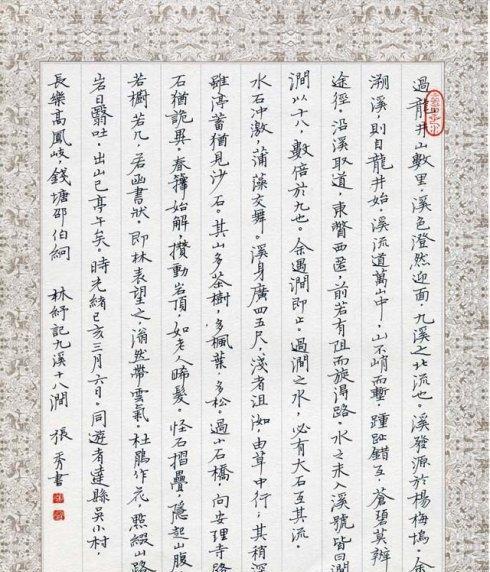 過龍井山數里，溪色澄然迎面，九溪之北流也。溪發源於楊梅塢。余
溯溪，則自龍井始。溪流道萬山中，山不峭而塹，踵趾錯互，蒼碧莫辨
途徑。沿溪取道，東瞥西匿，前若有阻而旋得路。水之未入溪號皆曰澗
澗以十八，數倍於九也。余遇澗即止。過澗之水，必有大石互其流。
水石沖激，蒲藻交舞。溪身廣四五尺，淺者沮洳，由草中行；其稍深
雖渟蓄猶見沙石。其山多茶樹，多楓葉，多松。過小石橋，向安理寺路
石猶詭異。春籜始解，攢動岩頂，如老人晞髮。怪石摺疊，隱起山腹
若櫥若几，若函書狀。即林表望之，滃然帶雲氣。杜鵑作花，點綴山路
岩日翳吐，出山已亭午矣。時光緒己亥三月六日。同遊者達縣吳小村，
長樂高鳳岐，錢塘邵伯絅 林紓記九溪十八澗 張秀書